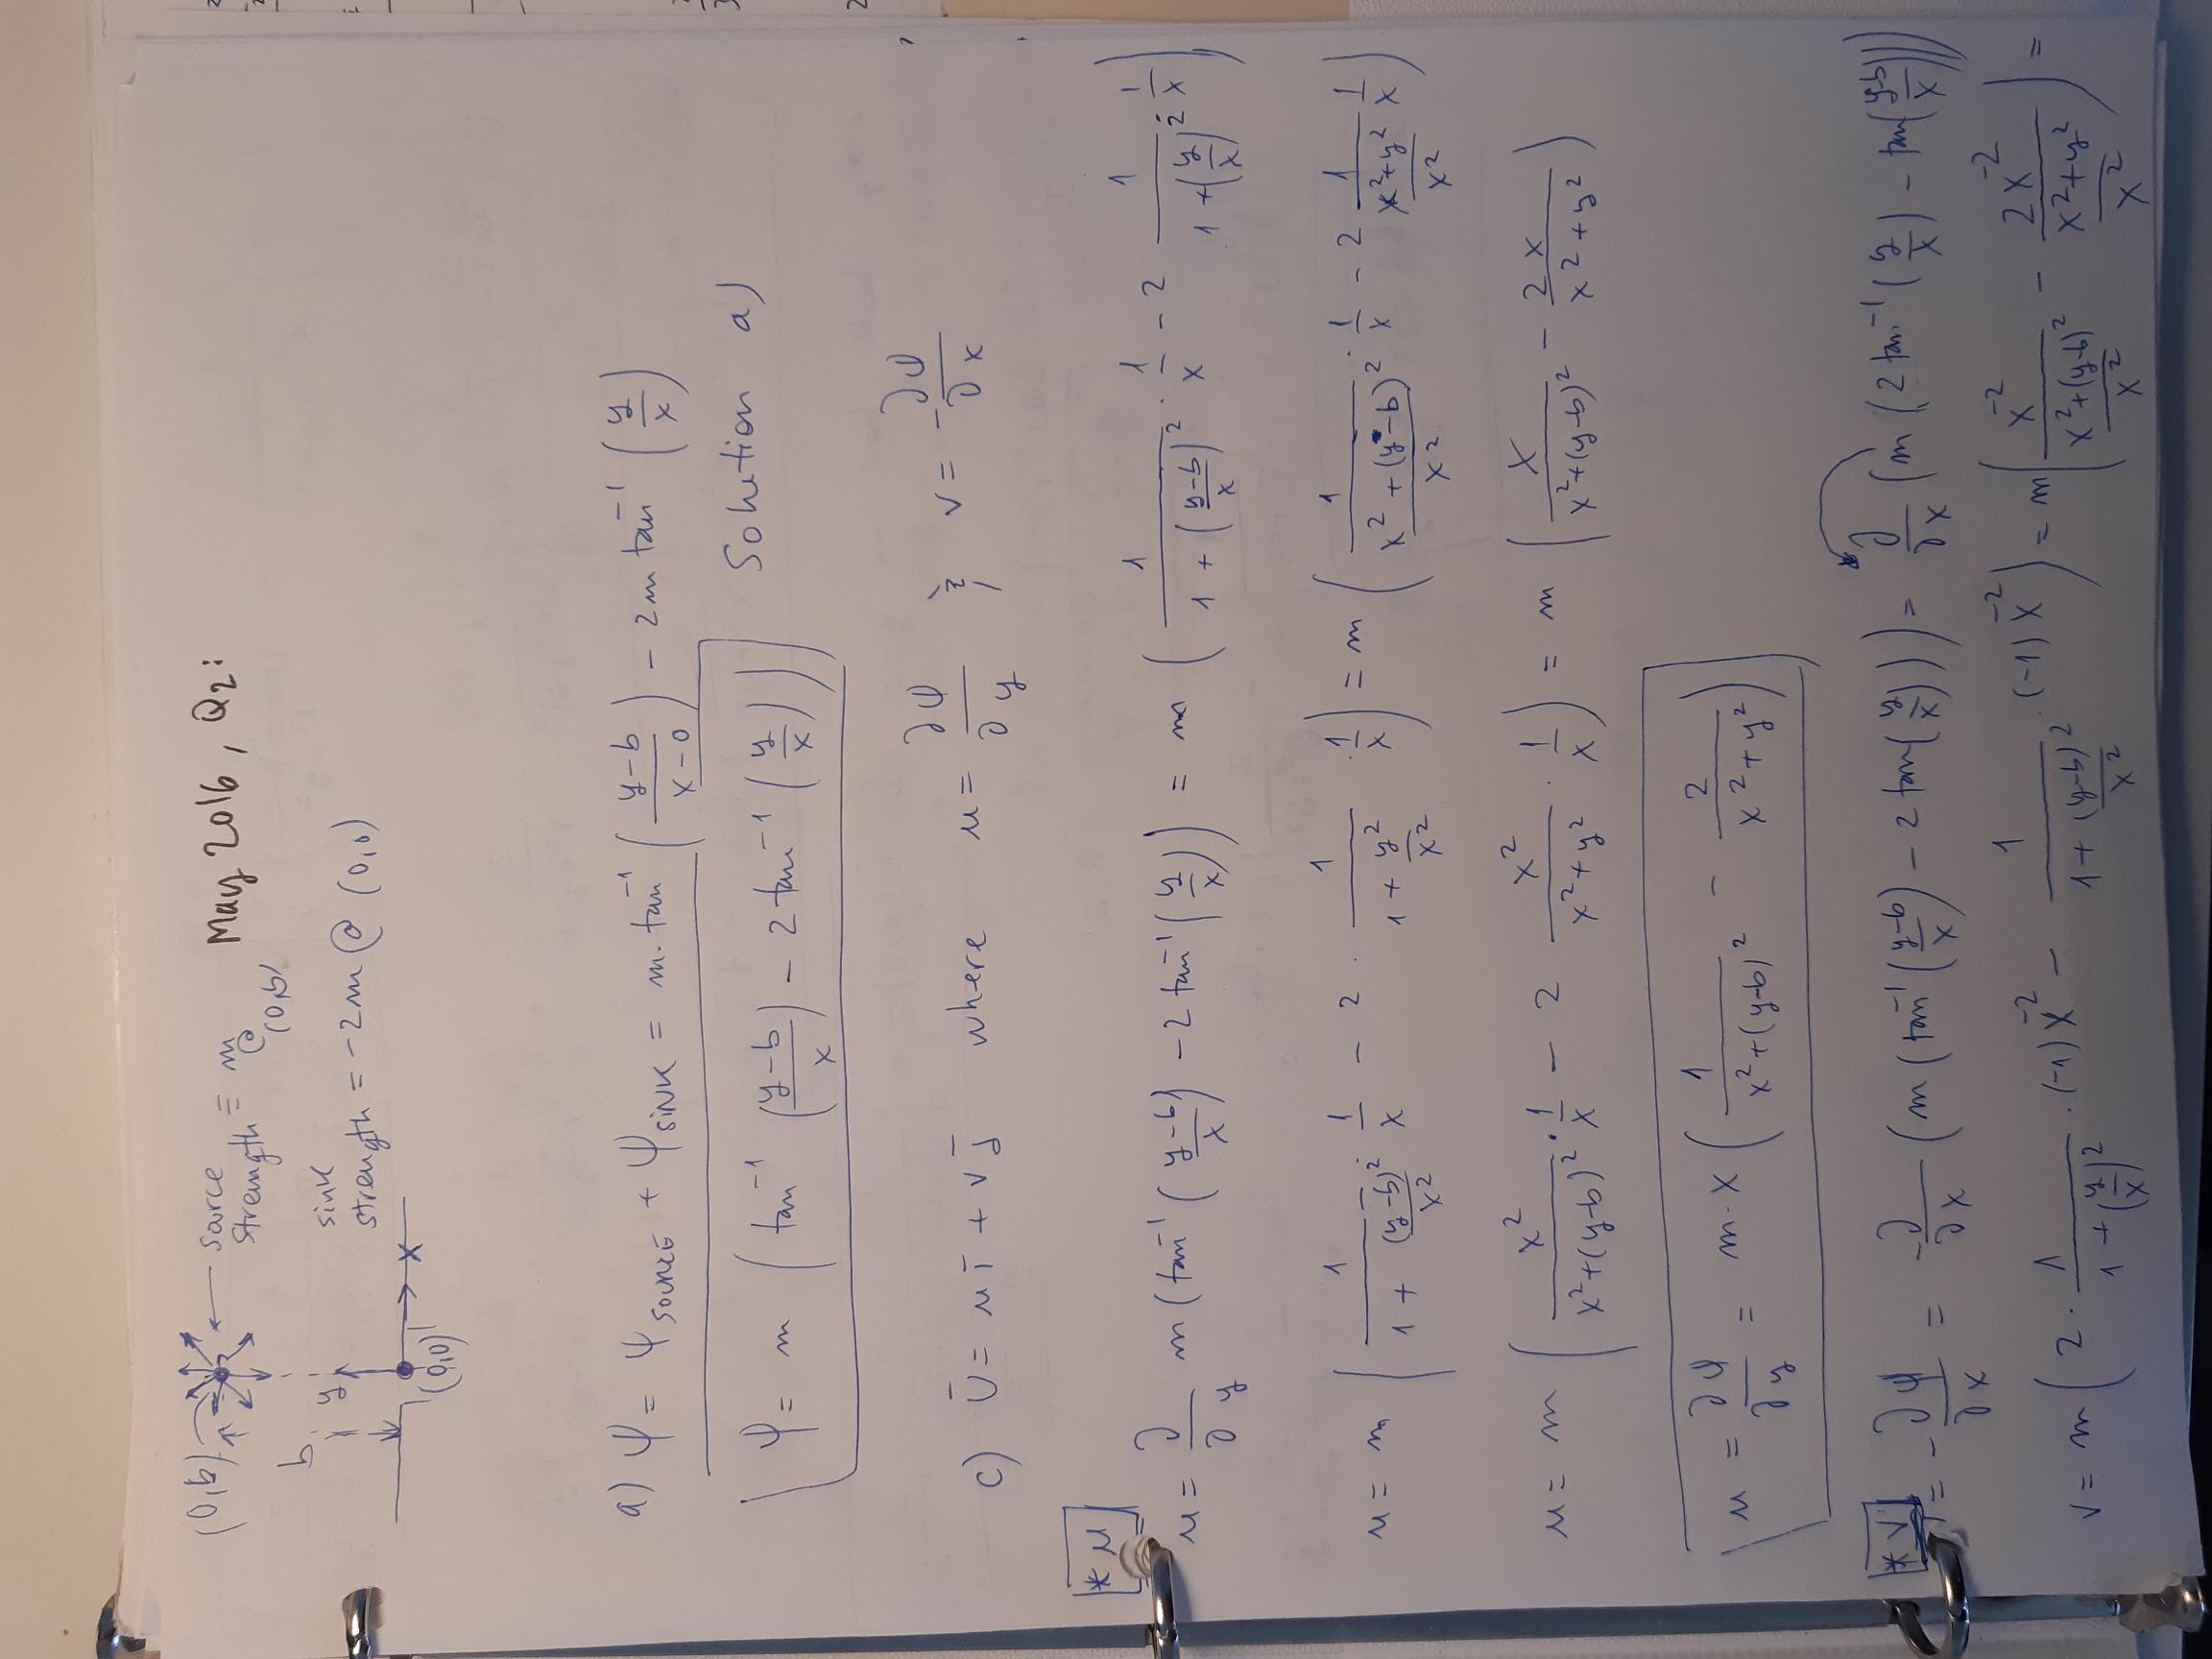 (0,b) source strength = m @ (0,b) May 2016, Q2:
b y sink strength = -2m @ (0,0)
x
(0,0)
a) ψ = ψ SOURCE + ψ SINK = m · tan⁻¹ ((y-b)/(x-0)) - 2m tan⁻¹ (y/x)
ψ = m (tan⁻¹ ((y-b)/x) - 2 tan⁻¹ (y/x)) Solution a)
c) Ū = u ī + v j̄ where u = ∂ψ/∂y & v = -∂ψ/∂x
* u
u = ∂/∂y m (tan⁻¹ ((y-b)/x) - 2 tan⁻¹ (y/x)) = m (1/(1 + ((y-b)/x)²) · 1/x - 2 1/(1 + (y/x)²) · 1/x)
u = m (1/(1 + (y-b)²/x²) · 1/x - 2 · 1/(1 + y²/x²) · 1/x) = m (1/((x² + (y-b)²)/x²) · 1/x - 2 1/((x² + y²)/x²) 1/x)
u = m (x²/(x² + (y-b)²) · 1/x - 2 x²/(x² + y²) · 1/x) = m (x/(x² + (y-b)²) - 2x/(x² + y²))
u = ∂ψ/∂y = m · x (1/(x² + (y-b)²) - 2/(x² + y²))
* v
v = -∂ψ/∂x = -∂/∂x (m (tan⁻¹ ((y-b)/x) - 2 tan (y/x))) = ∂/∂x (m (2 tan⁻¹ (y/x) - tan ((y-b)/x)))
v = m (2 · 1/(1 + (y/x)²) · (-1) x⁻² - 1/(1 + (y-b)²/x²) · (-1) x⁻²) = m (x⁻²/((x² + (y-b)²)/x²) - 2x⁻²/((x² + y²)/x²)) =